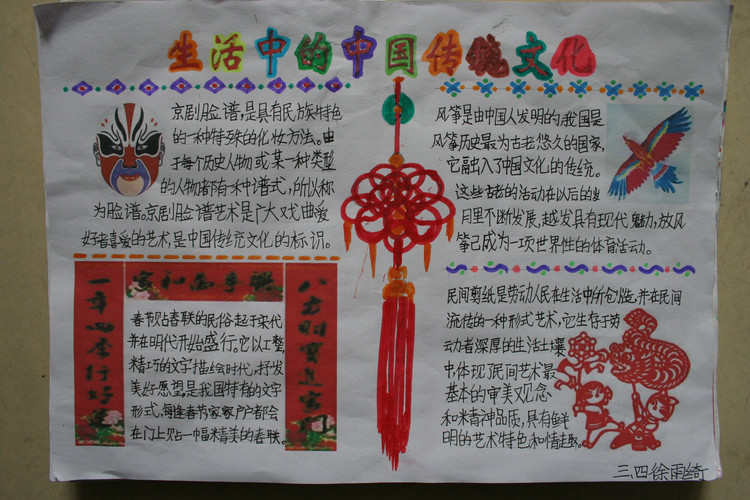 生活中的中国传统文化
京剧脸谱,是具有民族特色
的一种特殊的化妆方法。由
于每个历史人物或某一种类型
的人物都有一种谱式,所以称
为脸谱。京剧脸谱艺术是广大戏曲爱
好者喜爱的艺术,是中国传统文化的标识。
风筝是由中国人发明的,我国是
风筝历史最为古老悠久的国家,
它融入了中国文化的传统。
这些古老的活动在以后的岁
月里不断发展,越发具有现代魅力,放风
筝已成为一项世界性的体育活动。
家和万事兴
一年四季行好运
八方财宝进家门
春节贴春联的民俗起于宋代
并在明代开始盛行。它以工整,
精巧的文字描绘时代,抒发
美好愿望是我国特有的文字
形式,每逢春节家家户户都会
在门上贴一幅精美的春联。
民间剪纸是劳动人民在生活中所创造,并在民间
流传的一种形式艺术,它生存于劳
动者深厚的生活土壤
中体现了民间艺术最
基本的审美观念
和精神品质,具有鲜
明的艺术特色和情趣。
三.四徐雨绮